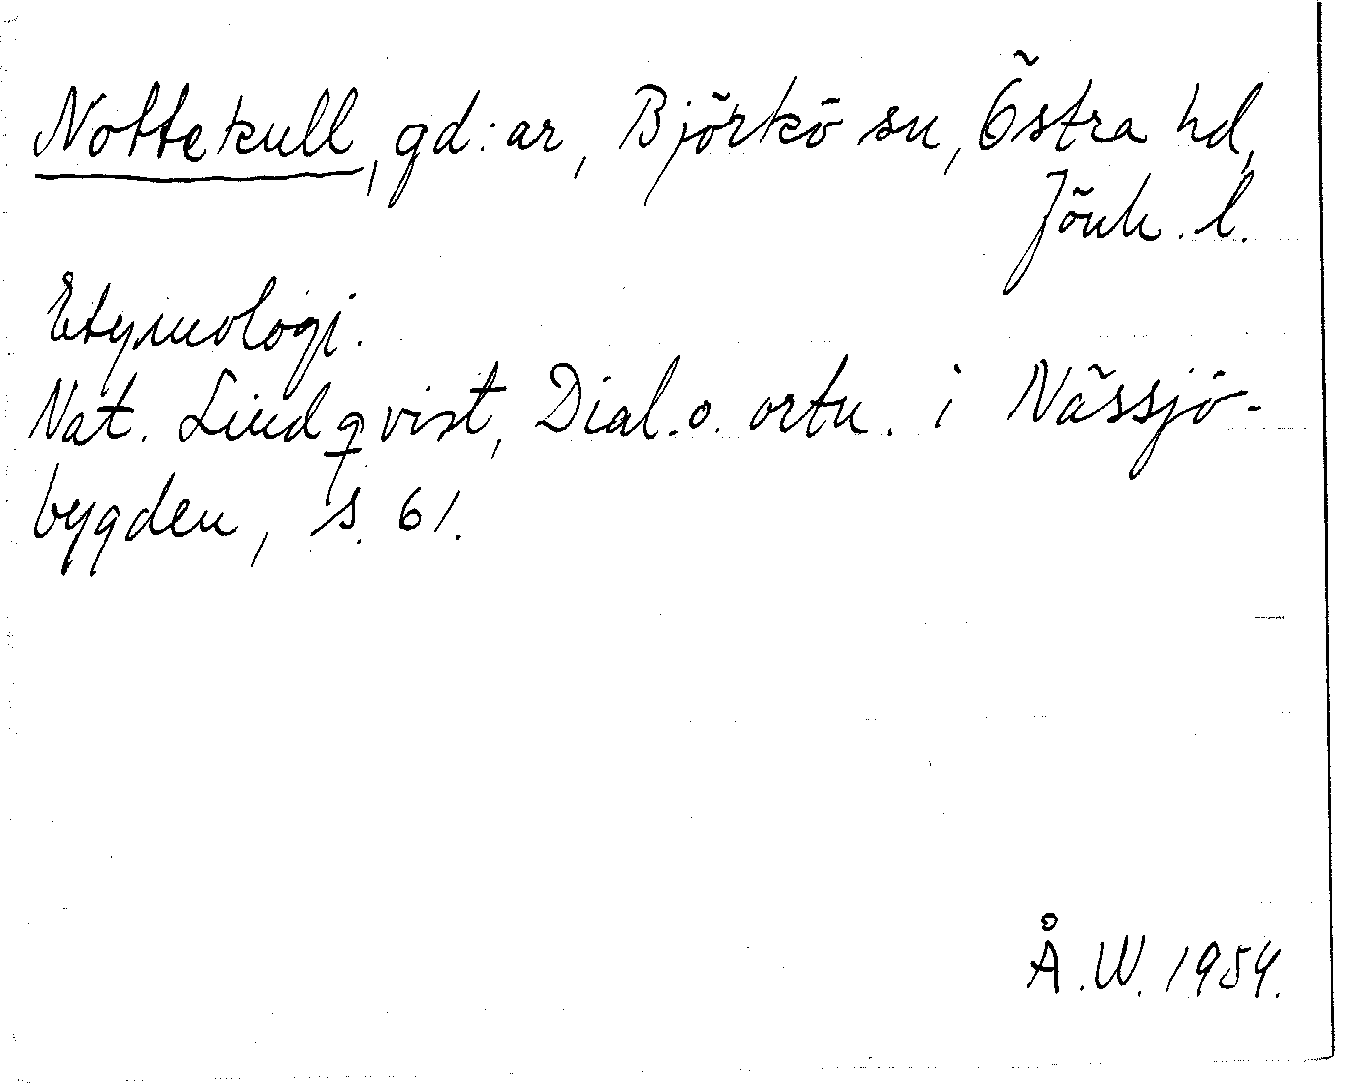 Nottekull, gd:ar, Björkö sn, Östra hd,
Jönk. l.
Etymologi.
Nat. Lindqvist, Dial. o. ortn. i Nässjö-
bygden, s. 61.
Å.W. 1954.